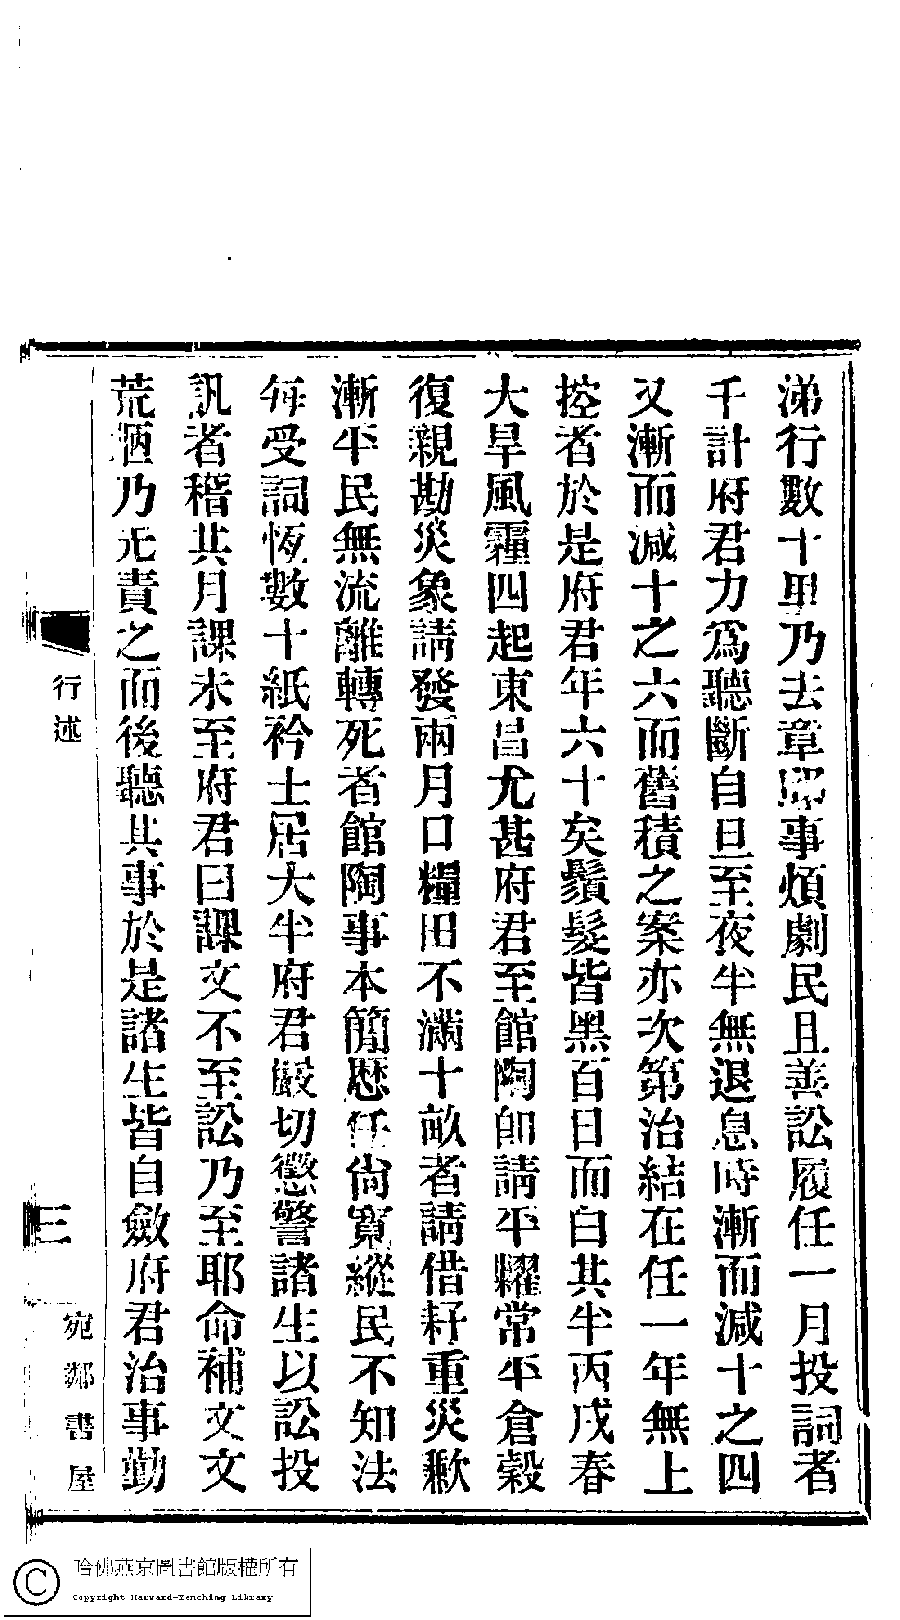 涕行數十里乃去章邱事煩劇民且善訟履任一月投詞者
千計府君力爲聽斷自旦至夜半無退息時漸而減十之四
又漸而減十之六而舊積之案亦次第治結在任一年無上
控者於是府君年六十矣鬚髮皆黑百日而白其半丙戌春
大旱風霾四起東昌尤甚府君至館陶卽請平糶常平倉穀
復親勘災象請發兩月口糧田不滿十畝者請借耔重災歉
漸平民無流離轉死者館陶事本簡歷任尙寬縱民不知法
每受詞恆數十紙衿士居大半府君嚴切懲警諸生以訟投
訊者稽其月課未至府君曰課文不至訟乃至耶命補文文
荒陋乃先責之而後聽其事於是諸生皆自斂府君治事勤
行述
三
宛鄰書屋
哈佛燕京圖書館版權所有
Copyright Harvard-Yenching Library